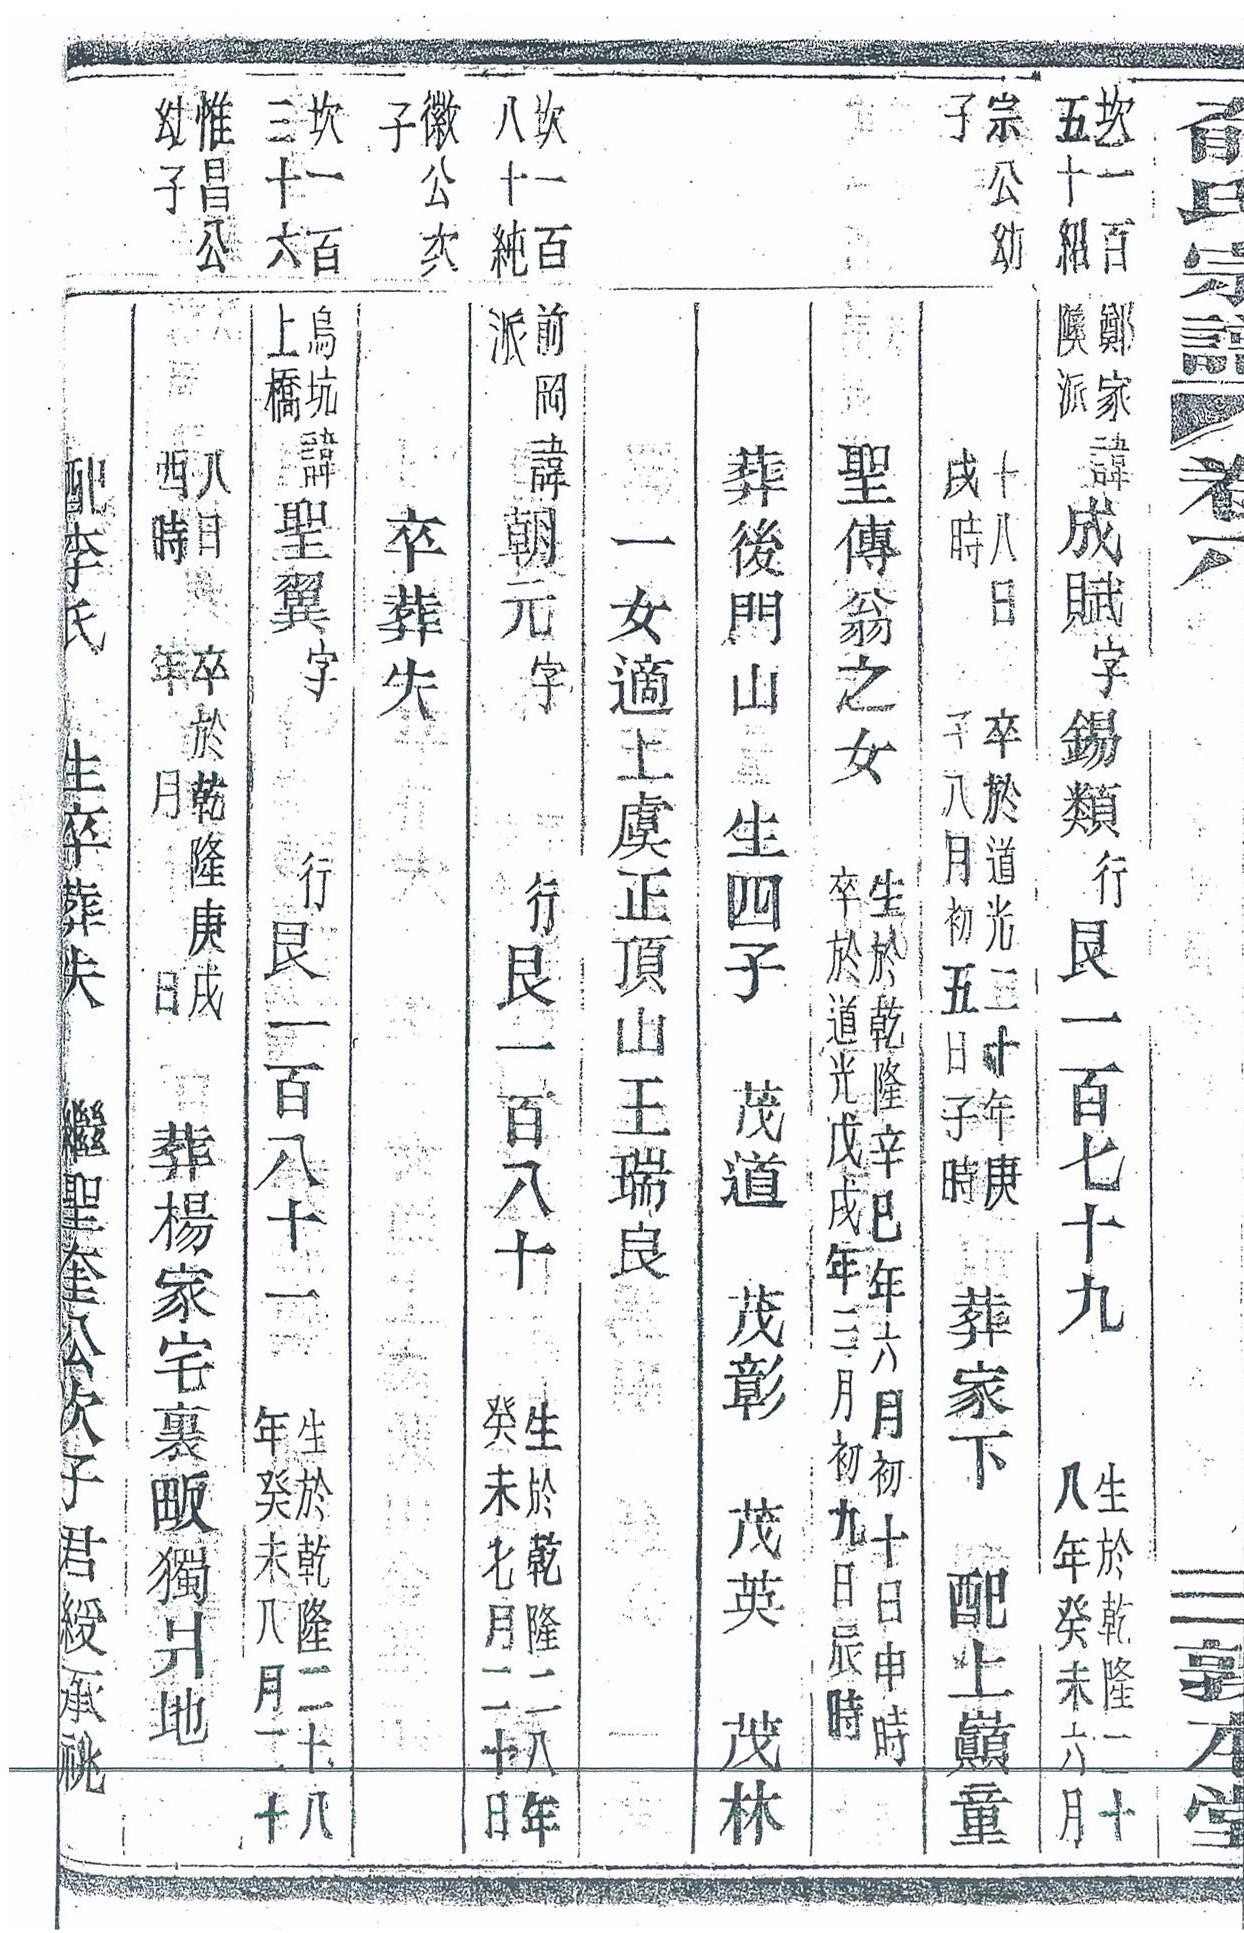 俞氏宗譜 卷八 三 敦本堂
坎一百五十紹宗公幼子
鄭家隩派 諱成賦 字錫類 行艮一百七十九 生於乾隆二十八年癸未六月
十八日戌時 卒於道光二十年庚子八月初五日子時 葬家下 配上巔童
聖傳翁之女 生於乾隆辛巳年六月初十日申時 卒於道光戊戌年三月初九日辰時
葬後門山 生四子 茂道 茂彰 茂英 茂林
一女適上虞正頂山王瑞良
坎一百八十純徽公次子
前岡 派 諱朝元 字 行艮一百八十 生於乾隆二八年癸未七月二十日
卒葬失
坎一百三十六惟昌公幼子
烏坑上橋 諱聖翼 字 行艮一百八十一 生於乾隆二十八年癸未八月二十
八日酉時 卒於乾隆庚戌年 月 日 葬楊家宅裏畈獨爿地
配李氏 生卒葬失 繼聖奎公次子君綬承祧